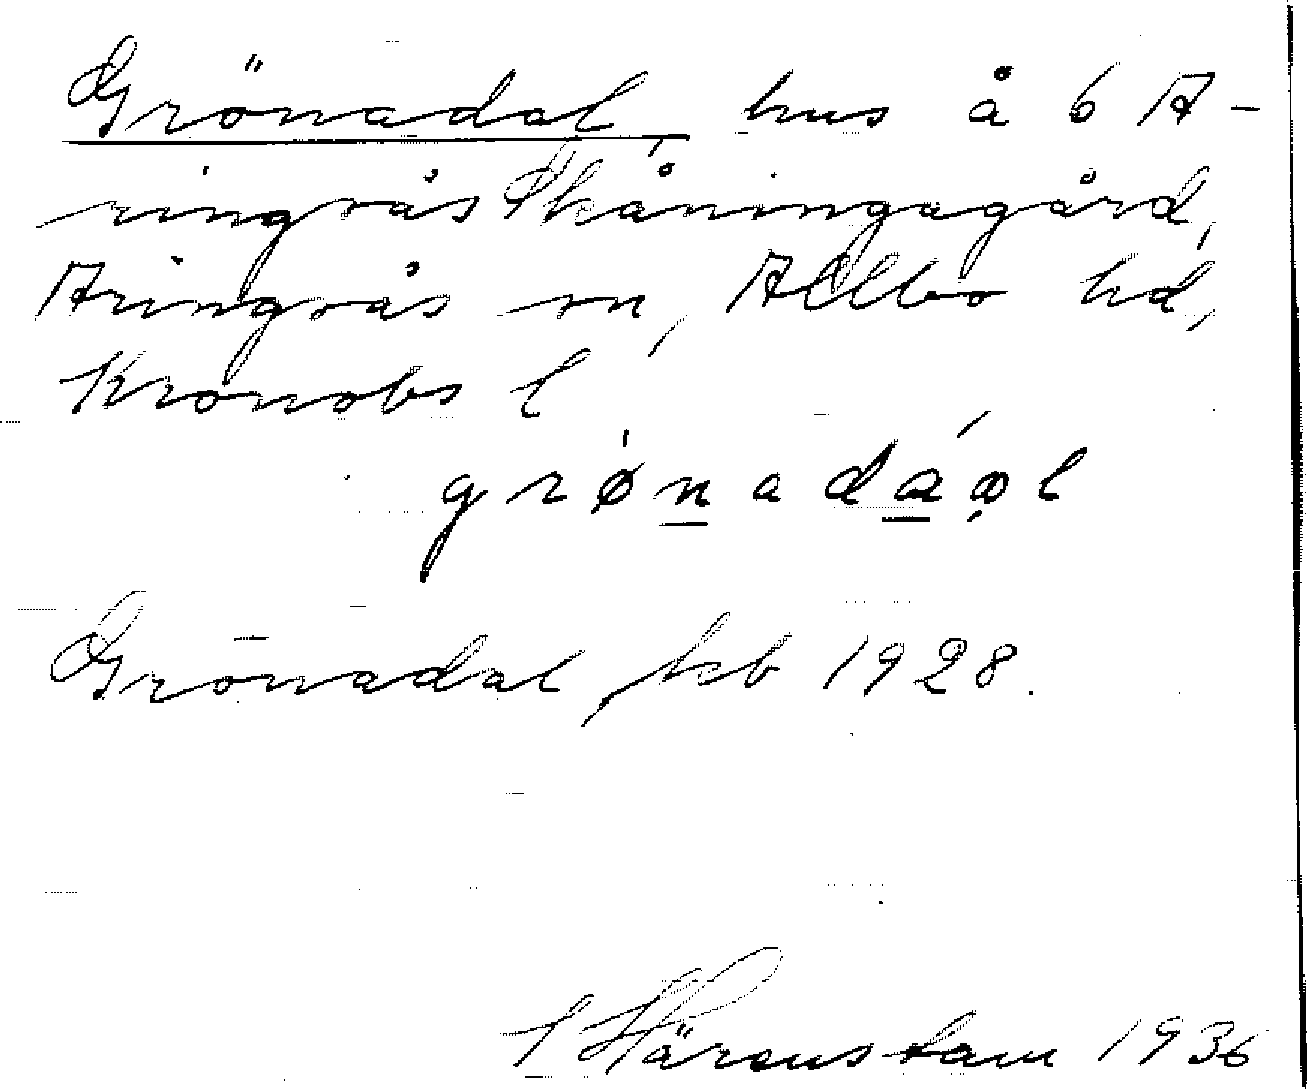 Grönadal, hus å 6 A-
ringsås Skåningagård,
Aringsås sn, Allbo hd,
Kronobs l
grønadáol
Grönadal, kb 1928.
S Härenstam 1936